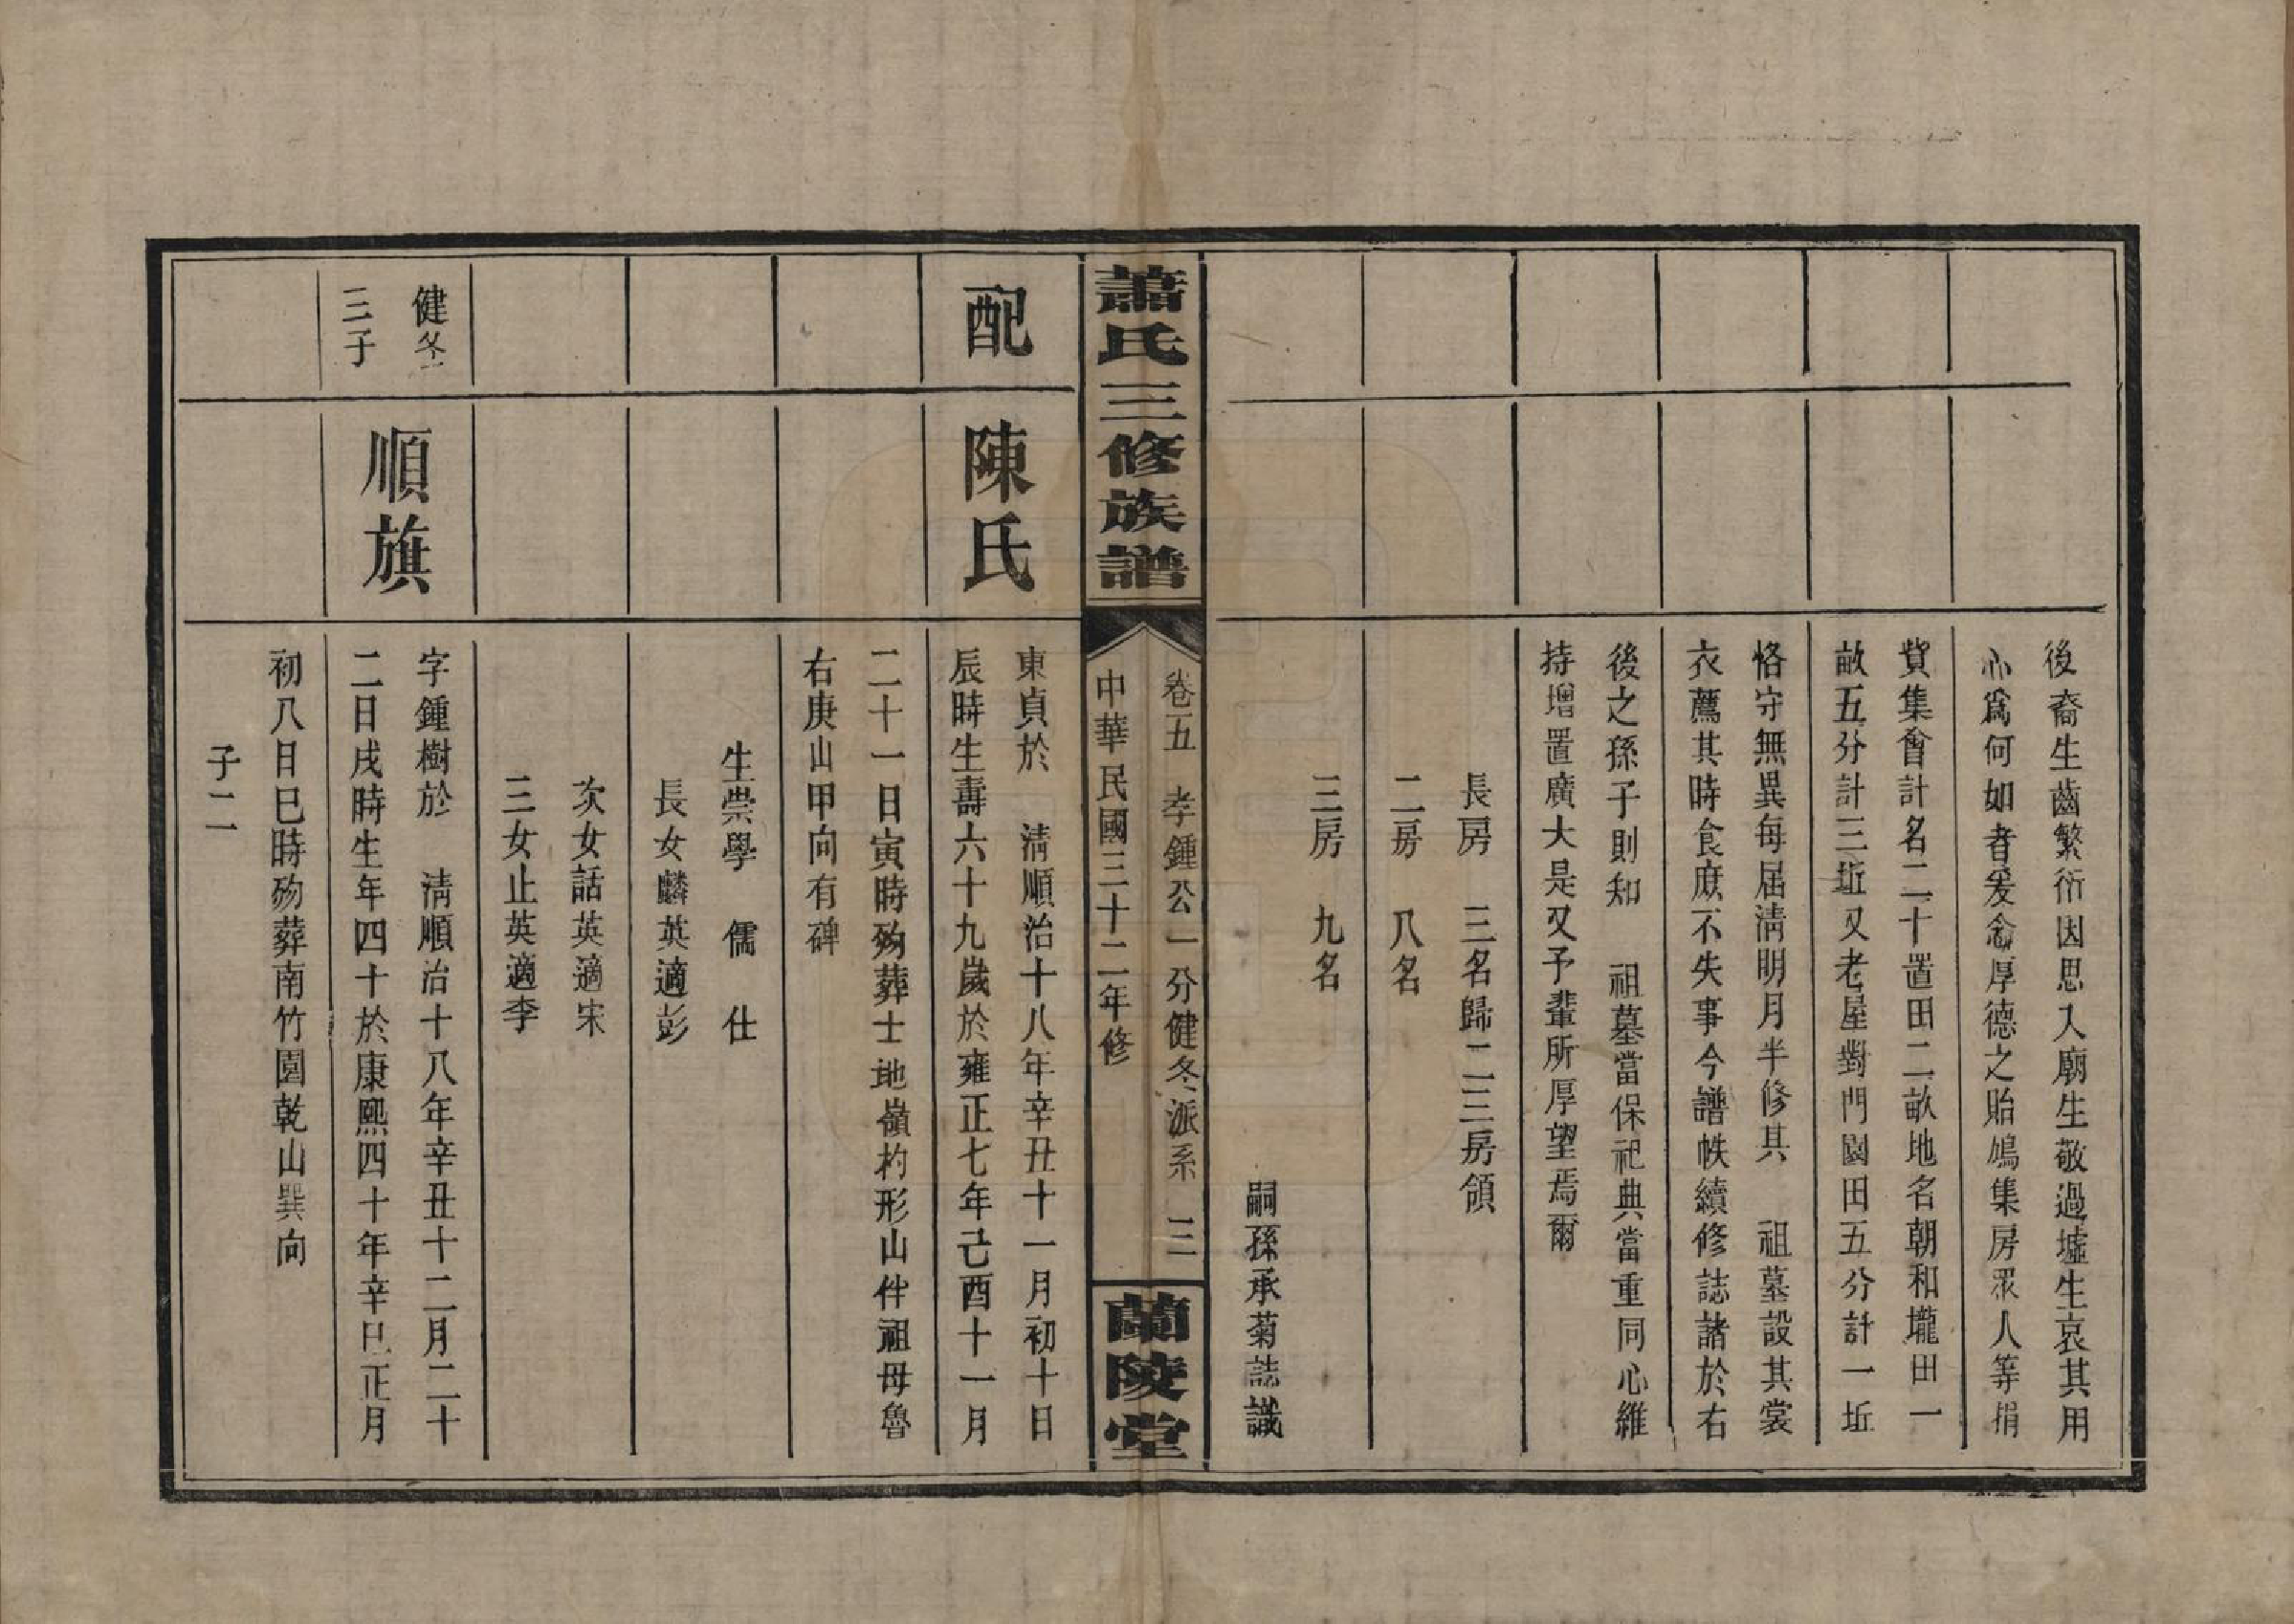 後裔生齒繁衍因思入廟生敬過墟生哀其用
心爲何如者爰念厚德之貽鳩集房眾人等捐
貲集會計名二十置田二畝地名朝和壠田一
畝五分計三坵又老屋對門園田五分計一坵
恪守無異每屆淸明月半修其　祖墓設其裳
衣薦其時食庶不失事今譜帙續修誌諸於右
後之孫子則知　祖墓當保祀典當重同心維
持增置廣大是又予輩所厚望焉爾
長房　三名歸二三房領
二房　八名
三房　九名
嗣孫承菊誌識
蕭氏三修族譜
卷五　孝鍾公一分健冬派系　三
中華民國三十二年修
蘭陵堂
配
陳氏
東貞於　淸順治十八年辛丑十一月初十日
辰時生壽六十九歲於雍正七年己酉十一月
二十一日寅時歿葬士地嶺杓形山伴祖母魯
右庚山甲向有碑
生崇學　儒　仕
長女麟英適彭
次女話英適宋
三女止英適李
健冬
三子
順旗
字鍾樹於　淸順治十八年辛丑十二月二十
二日戌時生年四十於康熙四十年辛巳正月
初八日巳時歿葬南竹園乾山巽向
子二